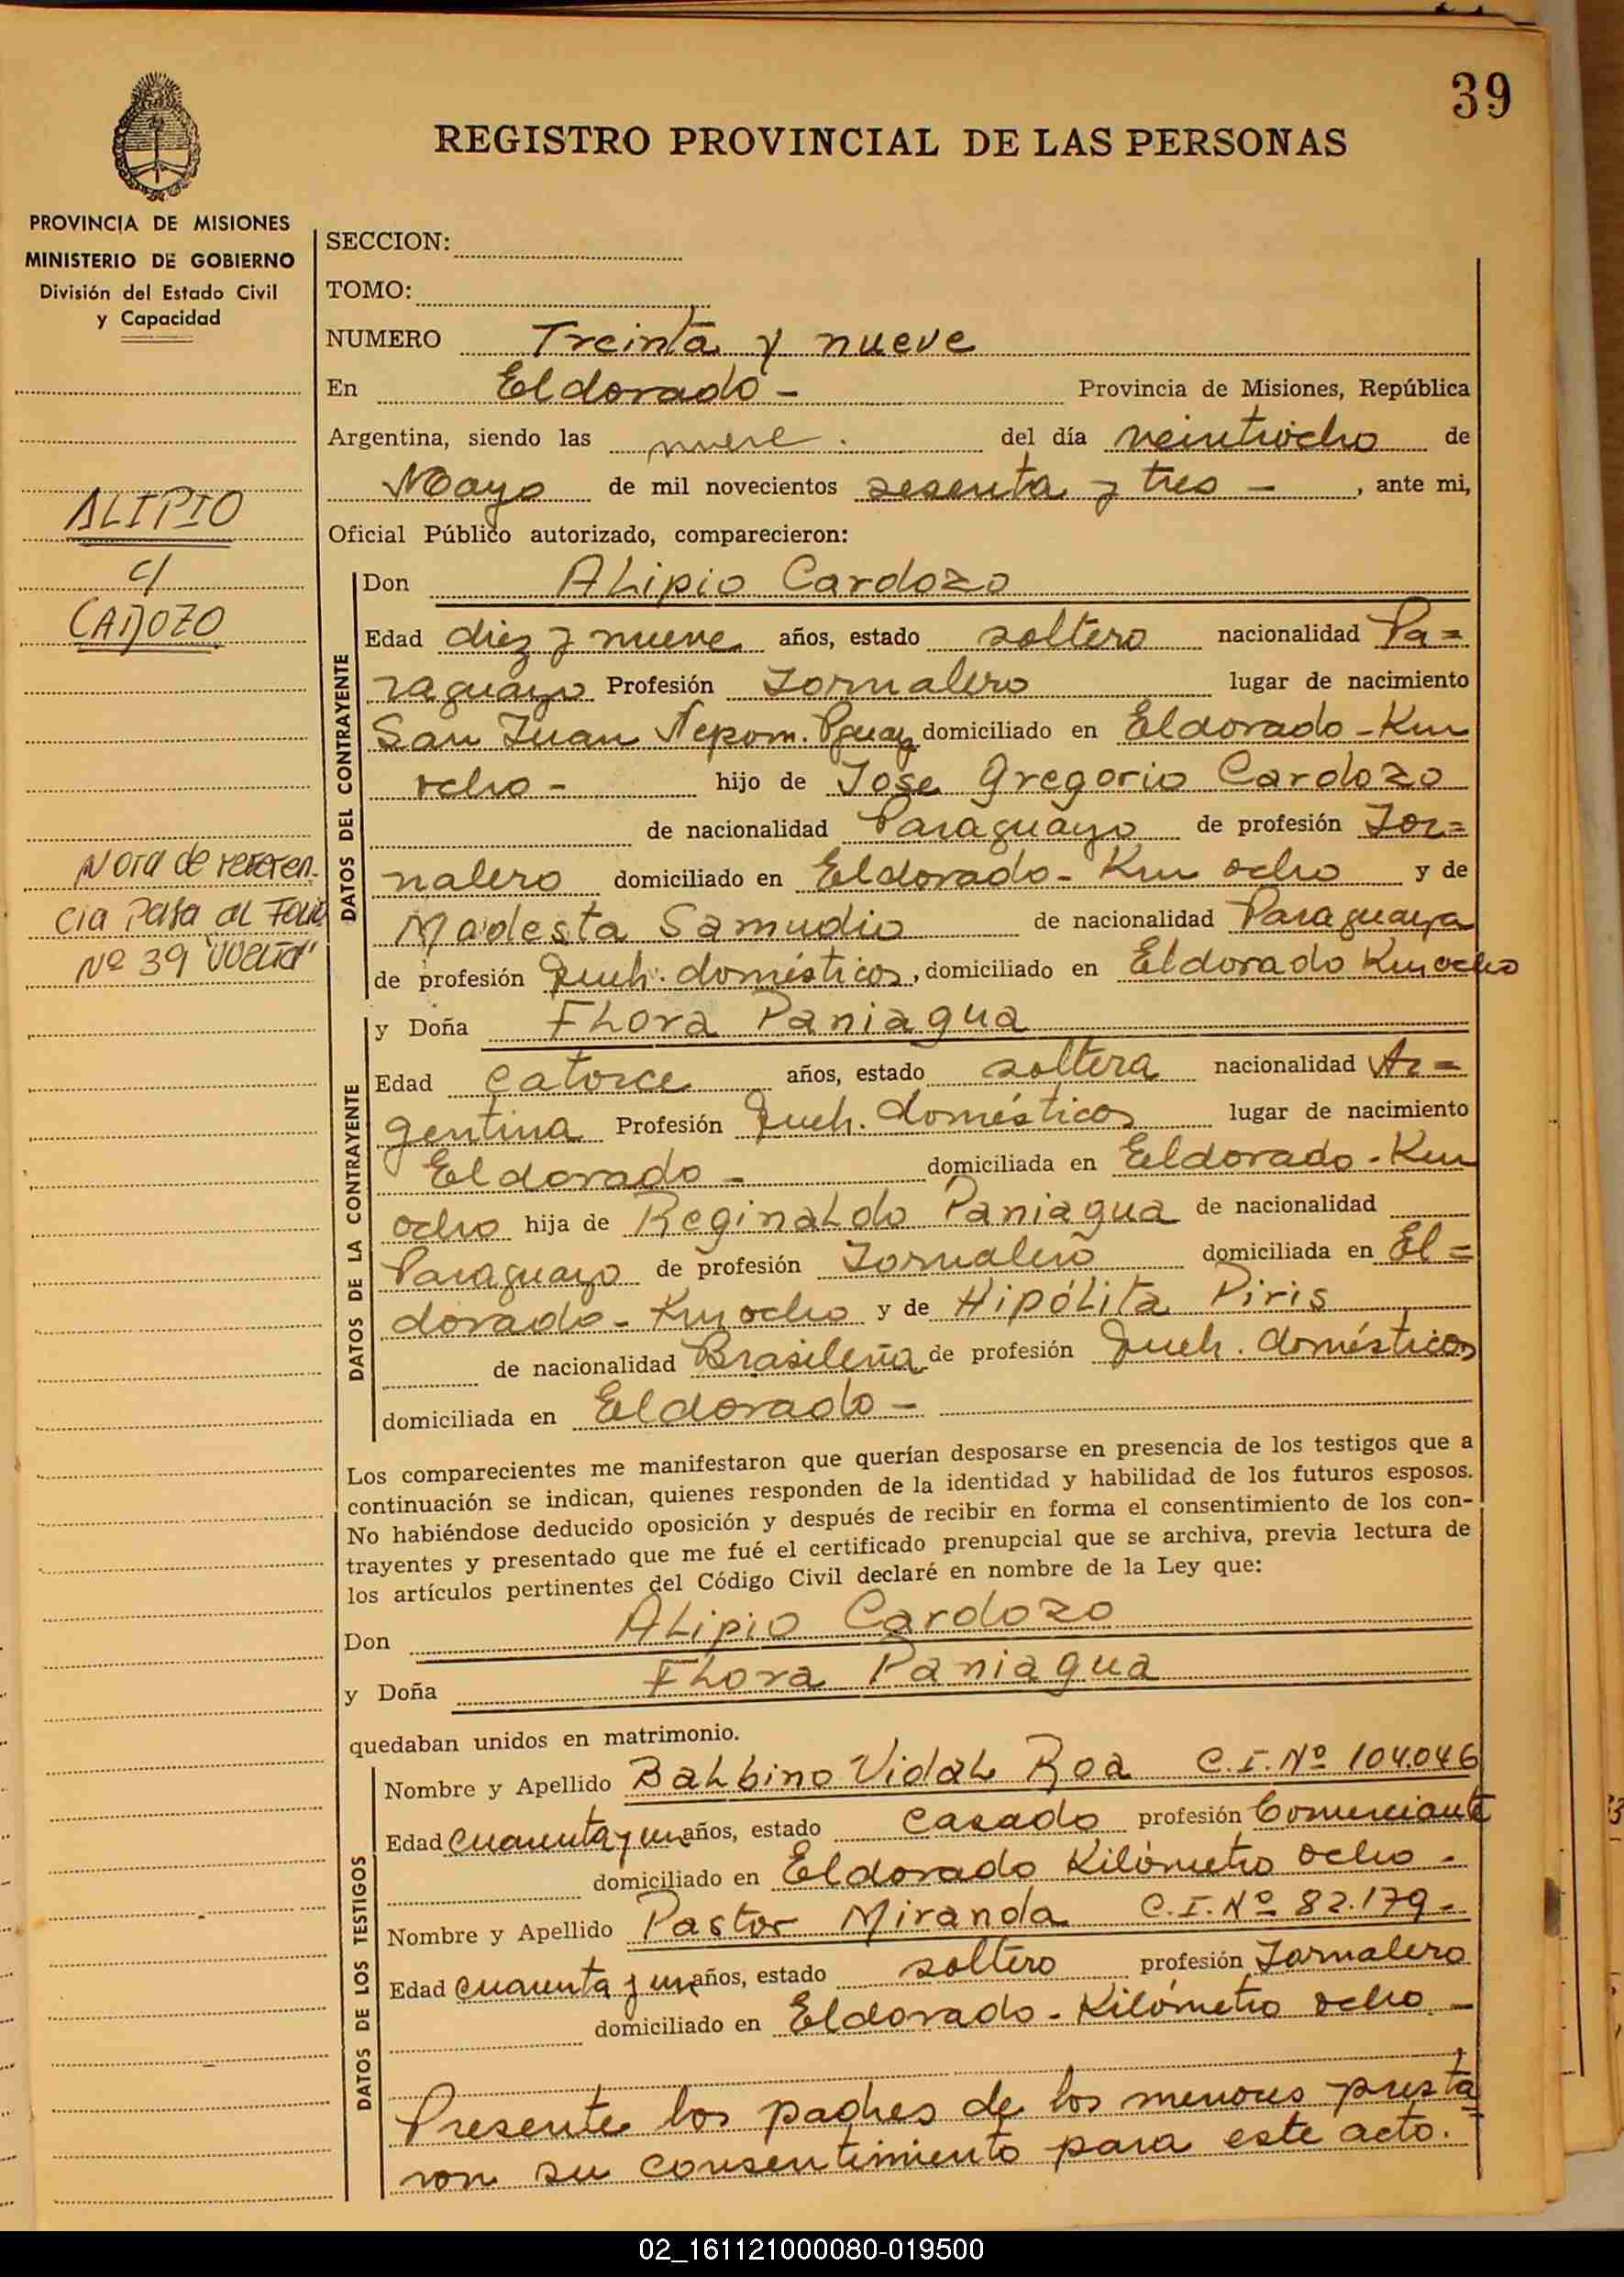 39
REGISTRO PROVINCIAL DE LAS PERSONAS
PROVINCIA DE MISIONES
MINISTERIO DE GOBIERNO
División del Estado Civil
y Capacidad
ALIPIO
c/
CADOZO
Nota de referen-
cia Pasa al Folio
Nº 39 "vuelta"
SECCION:
TOMO:
NUMERO Treinta y nueve
En Eldorado - Provincia de Misiones, República
Argentina, siendo las nueve. del día veintiocho de
Mayo de mil novecientos sesenta y tres - , ante mi,
Oficial Público autorizado, comparecieron:
DATOS DEL CONTRAYENTE
Don ALipio Cardozo
Edad diez y nueve años, estado soltero nacionalidad Pa=
raguayo Profesión Jornalero lugar de nacimiento
San Juan Nepom. Pguay domiciliado en Eldorado - Km
ocho - hijo de Jose Gregorio Cardozo
de nacionalidad Paraguayo de profesión Jor=
nalero domiciliado en Eldorado - Km ocho y de
Modesta Samudio de nacionalidad Paraguaya
de profesión Queh. domésticos, domiciliado en Eldorado Km ocho
DATOS DE LA CONTRAYENTE
y Doña FLora Paniagua
Edad catorce años, estado soltera nacionalidad Ar=
gentina Profesión Queh. domésticos lugar de nacimiento
Eldorado - domiciliada en Eldorado - Km
ocho hija de ReginaLdo Paniagua de nacionalidad
Paraguayo de profesión Jornalero domiciliada en El=
dorado - Km ocho y de HipóLita Piris
de nacionalidad Brasileña de profesión Queh. domésticos
domiciliada en Eldorado -
Los comparecientes me manifestaron que querían desposarse en presencia de los testigos que a
continuación se indican, quienes responden de la identidad y habilidad de los futuros esposos.
No habiéndose deducido oposición y después de recibir en forma el consentimiento de los con-
trayentes y presentado que me fué el certificado prenupcial que se archiva, previa lectura de
los artículos pertinentes del Código Civil declaré en nombre de la Ley que:
Don ALipio Cardozo
y Doña FLora Paniagua
quedaban unidos en matrimonio.
DATOS DE LOS TESTIGOS
Nombre y Apellido BaLbino VidaL Roa C.I. Nº 104.046
Edad cuarenta y un años, estado casado profesión Comerciante
domiciliado en Eldorado Kilómetro ocho -
Nombre y Apellido Pastor Miranda C.I. Nº 82.179 -
Edad cuarenta y un años, estado soltero profesión Jornalero
domiciliado en Eldorado - Kilómetro ocho -
Presente los padres de los menores presta=
ron su consentimiento para este acto.
02_161121000080-019500